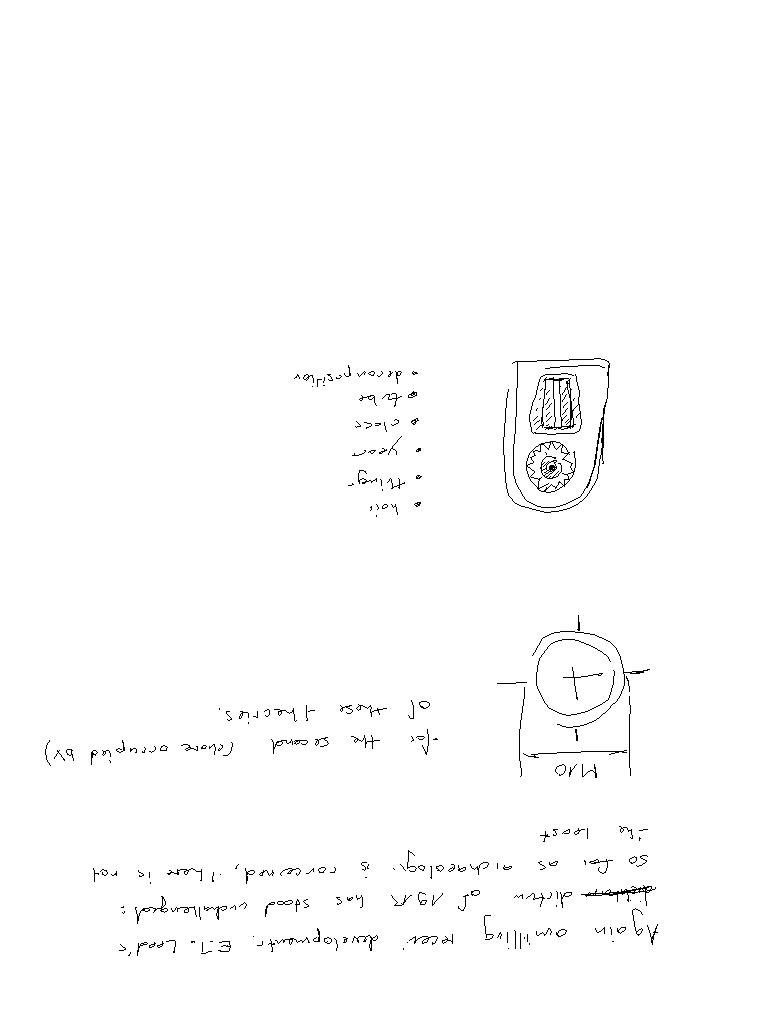 Again awilling recei developments. E.T. Leed's
dictum of 1915 has stood unchallenged:
so far as archaeologi is concerned, there is not
the least
M10
for the second (chore occupied by)
of these theories.
• hoir
• things
• year
• cloer
• tube
• decomposition